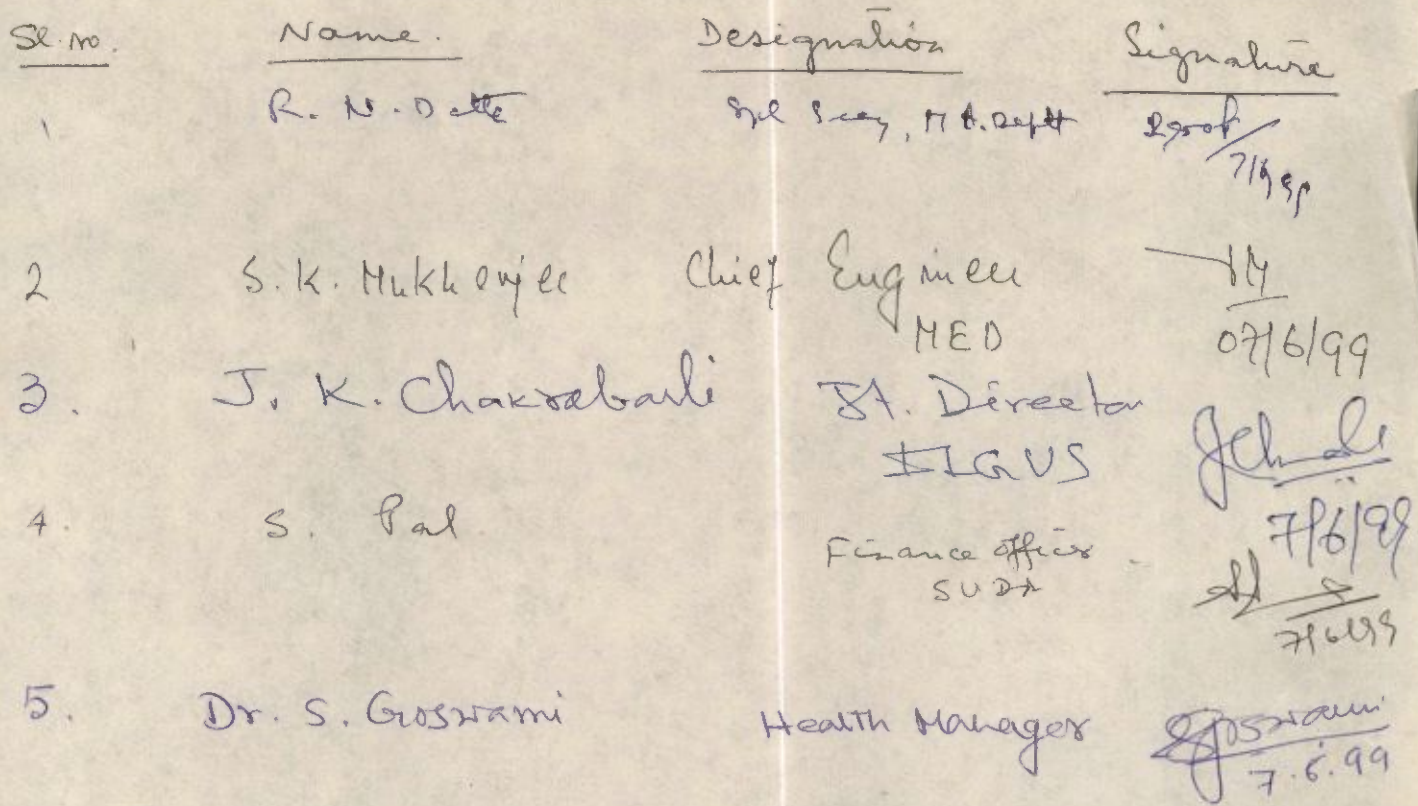 Sl. no. Name. Designation Signature
1 R. N. Dutta Spl Secy, M A. Deptt
7/6/99
2 S. K. Mukherjee Chief Engineer
MED
07/6/99
3. J. K. Chakrabarti Jt. Director
ILGUS
7/6/99
4. S. Pal Finance Officer
SUDA
7/6/99
5. Dr. S. Goswami Health Manager SGoswami
7.6.99